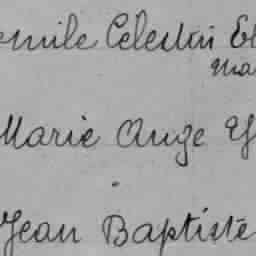 emile Celestin El
Ma
Marie Ange Y
Jean Baptiste